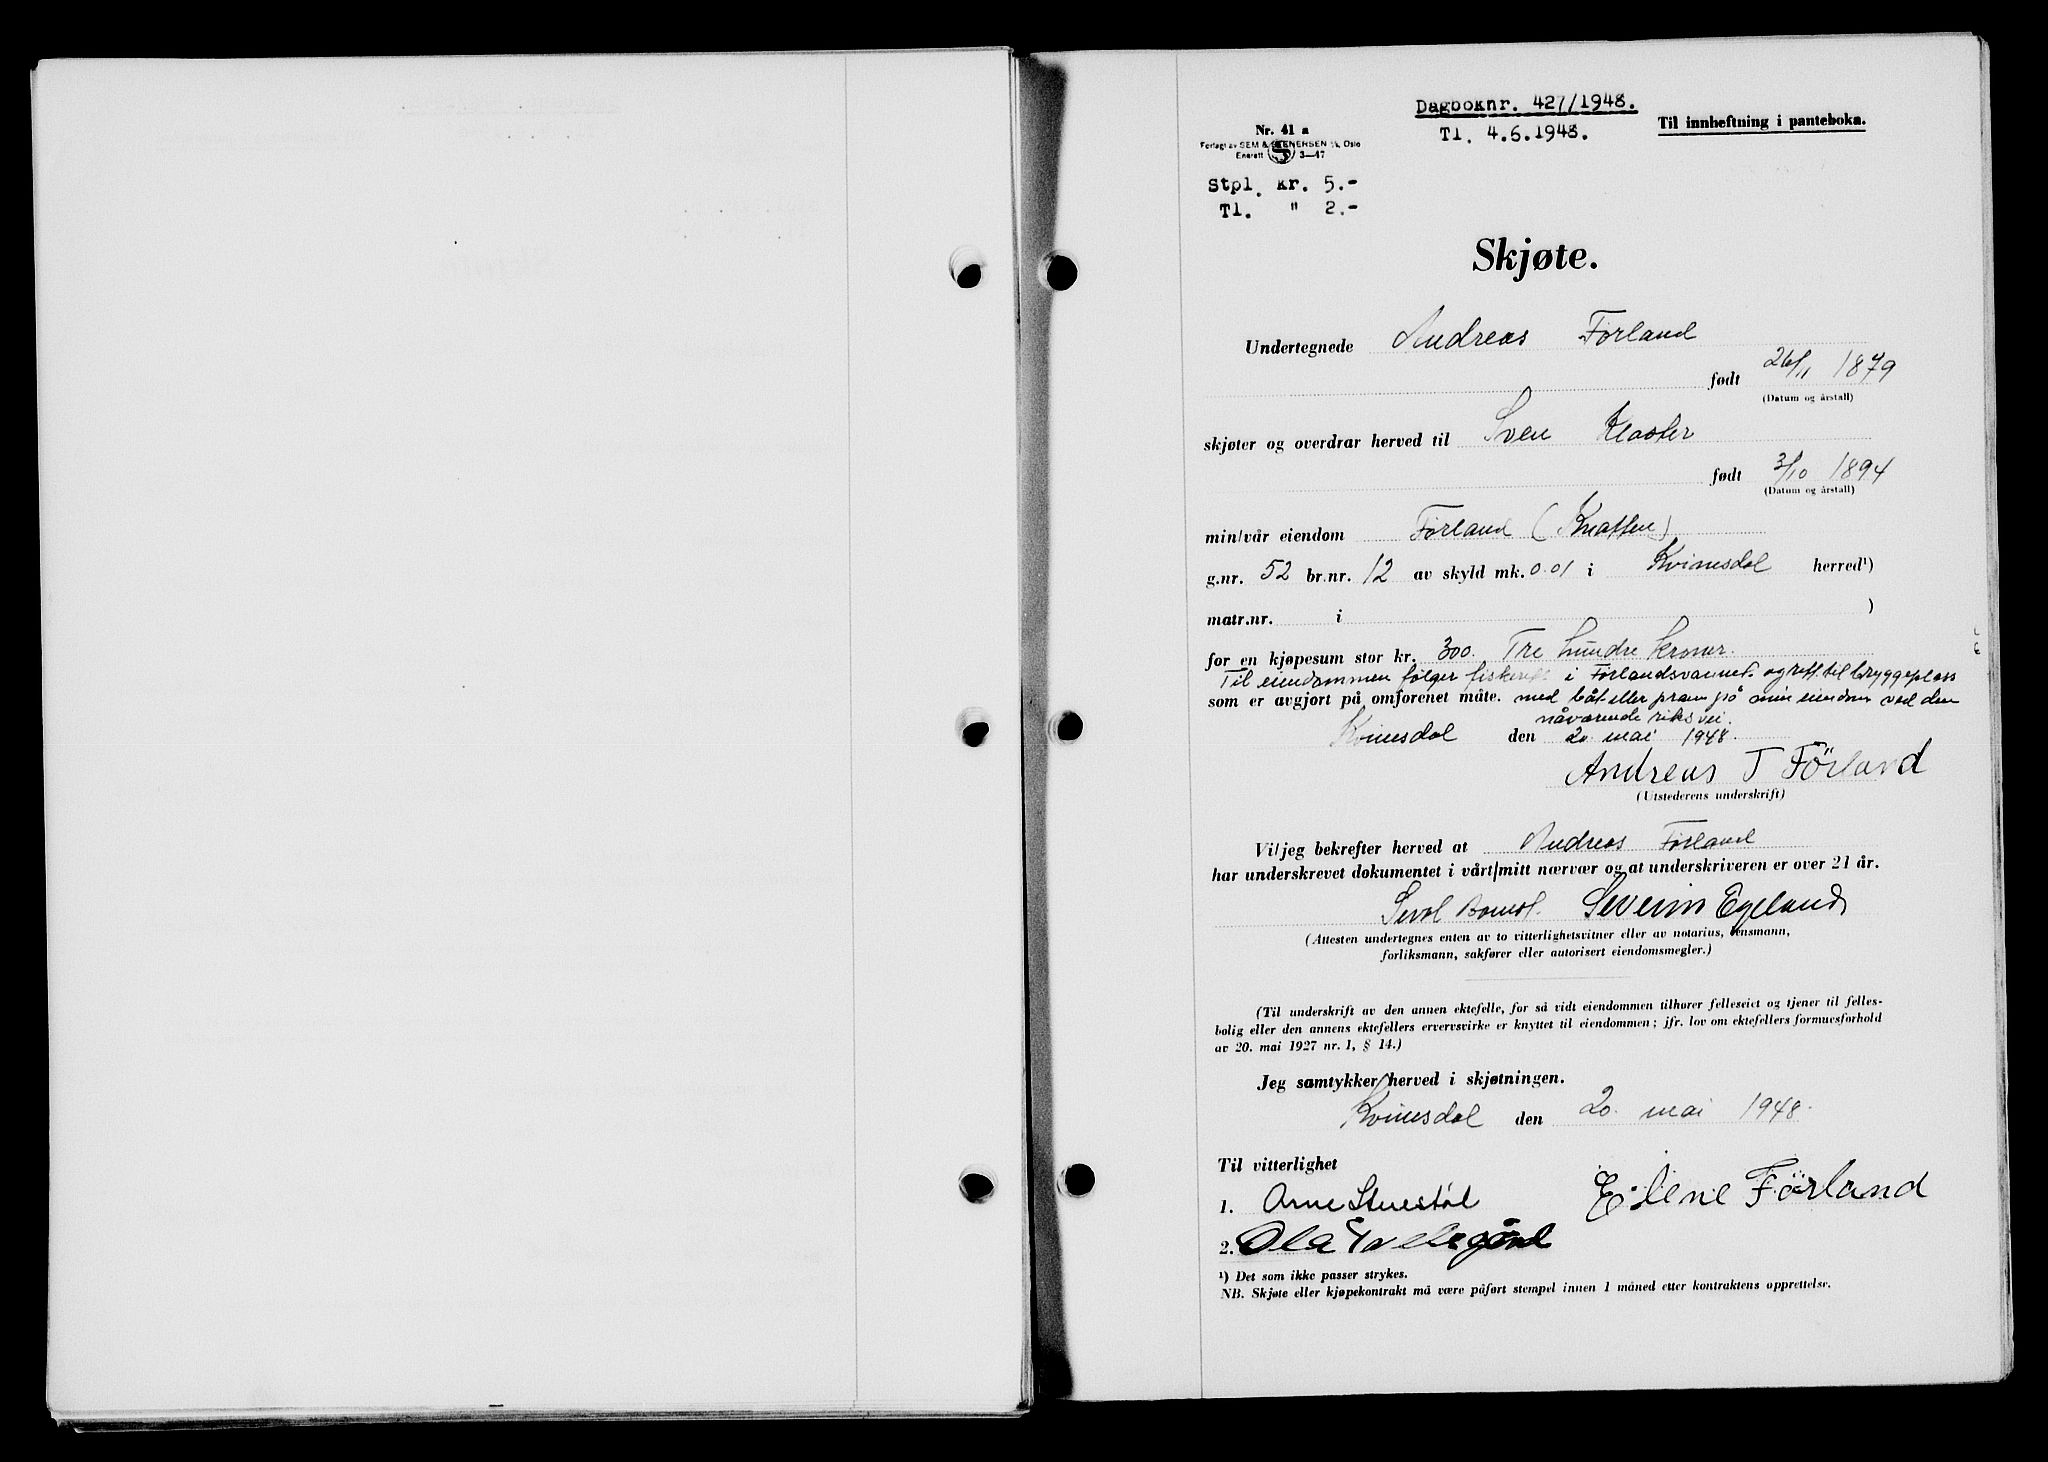 Dagboknr. 427/1948.
Tl. 4.6.1948.
Til innheftning i panteboka.
Nr. 41 a
Forlagt av SEM & STENERSEN A/S, Oslo
Enerett 3—47
Stpl. kr. 5.-
Tl. " 2.-
Skjøte.
Undertegnede Andreas Førland
født 26/11 1879
(Datum og årstall)
skjøter og overdrar herved til Sven
født 3/10 1894
(Datum og årstall)
min/vår eiendom Førland (Knatten)
g.nr. 52 br.nr. 12 av skyld mk. 0.01 i Kvinesdal herred¹)
matr.nr. i )
for en kjøpesum stor kr. 300. Tre hundre kroner.
Til eiendommen følger fiskerett i Førlandsvannet. og rett til bryggeplass
som er avgjort på omforenet måte. med båt eller pram på min eiendom ved den
nåværende riksvei.
Kvinesdal den 20. mai 1948.
Andreas T Förland
(Utstederens underskrift)
Vi/jeg bekrefter herved at Andreas Førland
har underskrevet dokumentet i vårt/mitt nærvær og at underskriveren er over 21 år.
Severin Egeland
(Attesten undertegnes enten av to vitterlighetsvitner eller av notarius, lensmann,
forliksmann, sakfører eller autorisert eiendomsmegler.)
(Til underskrift av den annen ektefelle, for så vidt eiendommen tilhører felleseiet og tjener til felles-
bolig eller den annens ektefellers ervervsvirke er knyttet til eiendommen; jfr. lov om ektefellers formuesforhold
av 20. mai 1927 nr. 1, § 14.)
Jeg samtykker herved i skjøtningen.
Kvinesdal den 20. mai 1948.
Til vitterlighet
Elene Förland
1. Arne
2. Ola
¹) Det som ikke passer strykes.
NB. Skjøte eller kjøpekontrakt må være påført stempel innen 1 måned etter kontraktens opprettelse.